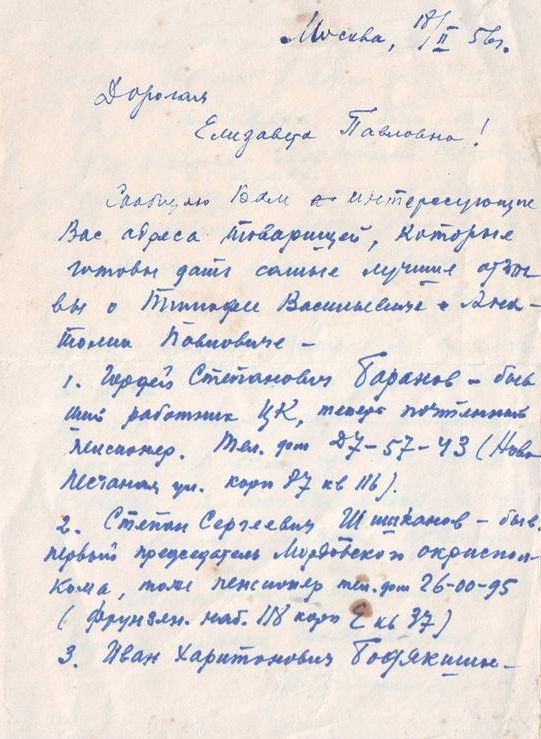 Москва, 18/II 56г.
Дорогая
Елизавета Павловна!
Сообщаю Вам интересующие
Вас адреса товарищей, которые
готовы дать самые лучшие отзы-
вы о Тимофее Васильевиче и Ана-
толии Павловиче –
1. Гордей Степанович Баранов – быв
ший работник ЦК, теперь почтенный
пенсионер. Тел. дом Д7-57-43 (Ново
песчаная ул. корп 87 кв 116).
2. Степан Сергеевич Шишканов – быв.
первый председатель Мордовского окриспол-
кома, тоже пенсионер тел. дом 26-00-95
(Фрунзен. наб. 118 корп Е кв 37)
3. Иван Харитонович Бодякшин –